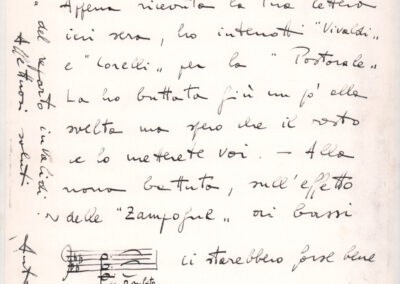 Appena ricevuta la tua lettera
ieri sera, ho interrotto "Vivaldi"
e "Corelli" per la "Pastorale"
La ho buttata giù un pò alla
svelta ma spero che il resto
ce lo metterete voi. - Alla
nona battuta, sull'effetto
delle "Zampogne" ai bassi
ci starebbero forse bene
del reparto invalidi.
Affettuosi saluti